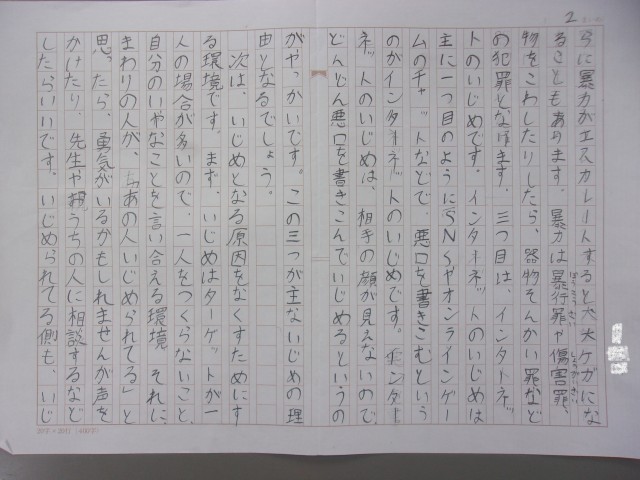 2
らに暴力がエスカレートすると大ケガにな
ることもあります。暴力は暴行罪や傷害罪、
物をこわしたりしたら、器物そんかい罪など
の犯罪となります。三つ目は、インターネッ
トのいじめです。インターネットのいじめは
主に一つ目のようにSNSやオンラインゲー
ムのチャットなどで、悪口を書きこむという
のがインターネットのいじめです。インター
ネットのいじめは、相手の顔が見えないので、
どんどん悪口を書きこんでいじめるというの
がやっかいです。この三つが主ないじめの理
由となるでしょう。
次は、いじめとなる原因をなくすためにす
る環境です。まず、いじめはターゲットが一
人の場合が多いので、一人をつくらないこと、
自分のいやなことを言い合える環境、それに、
まわりの人が、「あの人いじめられてる」と
思ったら、勇気がいるかもしれませんが声を
かけたり、先生や親うちの人に相談するなど
したらいいです。いじめられてる側も、いじ